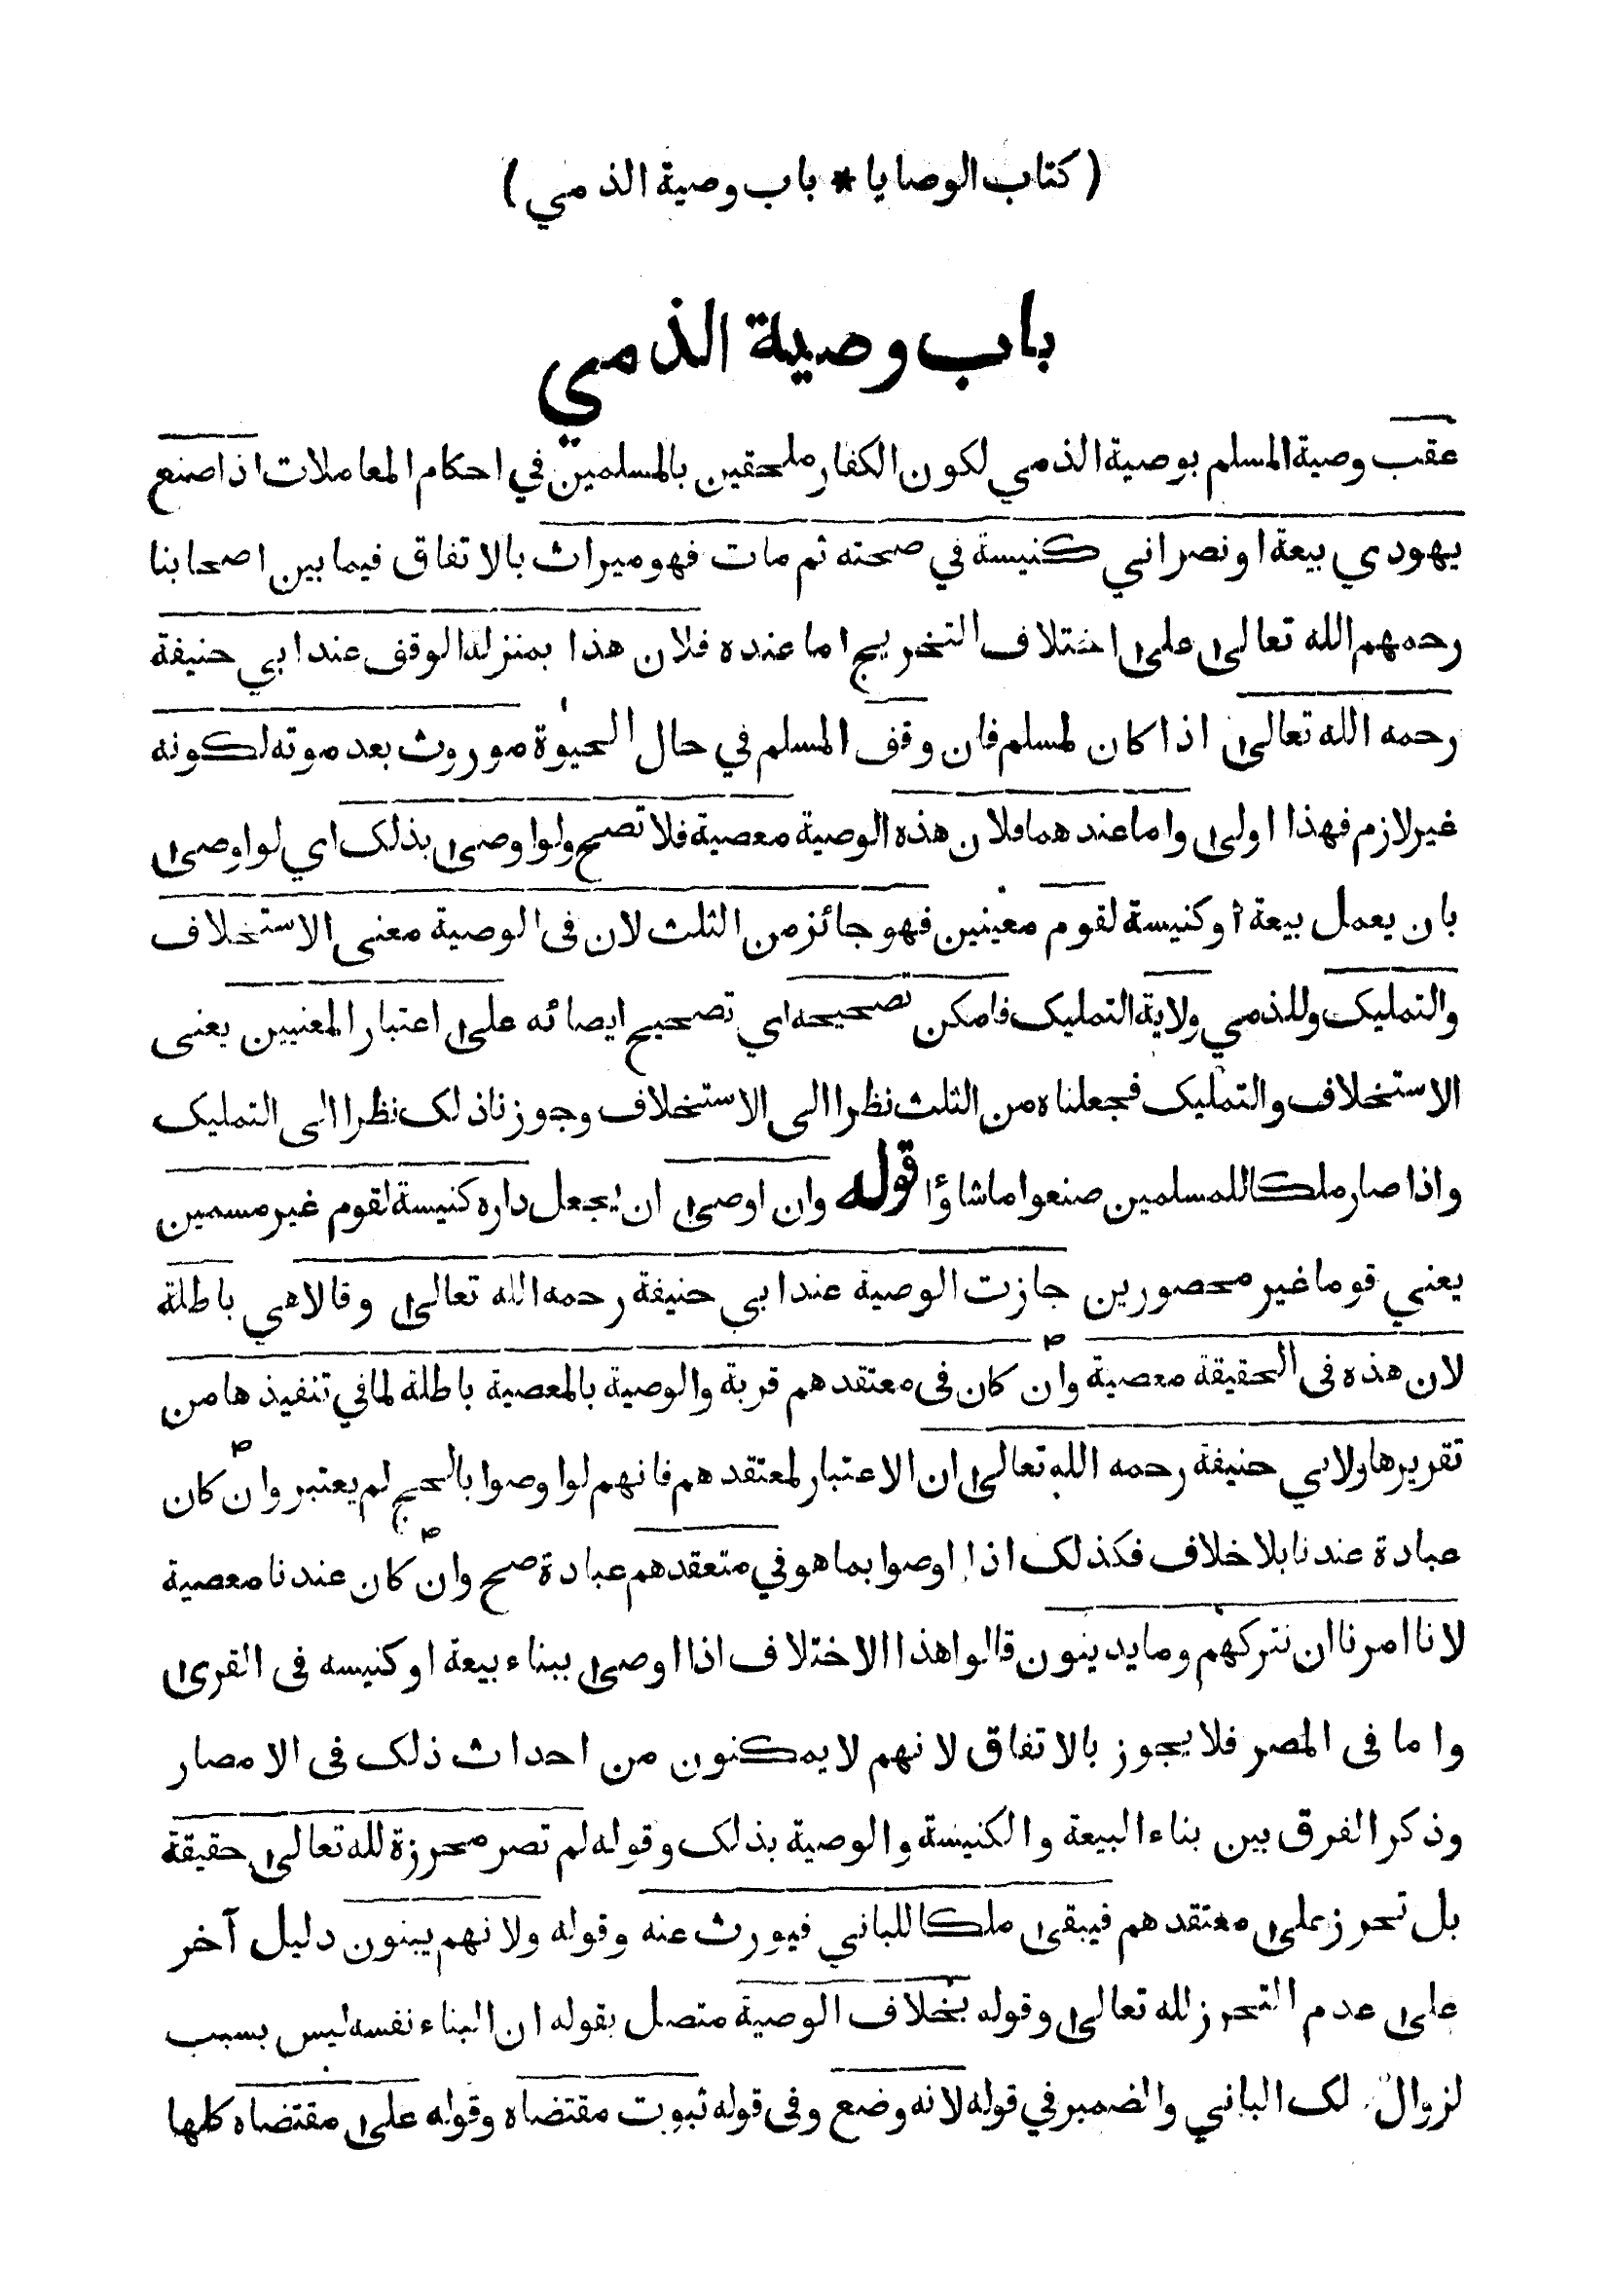 ( كتاب الوصايا * باب وصية الذمي )
باب وصية الذمي
عقب وصية المسلم بوصية الذمي لكون الكفار ملحقين بالمسلمين في احكام المعاملات اذا صنع
يهودي بيعة او نصراني كنيسة في صحته ثم مات فهو ميراث بالاتفاق فيما بين اصحابنا
رحمهم الله تعالى على اختلاف التخريج اما عنده فلان هذا بمنزلة الوقف عند ابي حنيفة
رحمه الله تعالى اذا كان لمسلم فان وقف المسلم في حال الحيوة موروث بعد موته لكونه
غير لازم فهذا اولى واما عندهما فلان هذه الوصية معصية فلا تصح ولو اوصى بذلك اي لو اوصى
بان يعمل بيعة او كنيسة لقوم معينين فهو جائز من الثلث لان فى الوصية معنى الاستخلاف
والتمليك وللذمي ولاية التمليك فامكن تصحيحه اي تصحيح ايصائه على اعتبار المعنيين يعنى
الاستخلاف والتمليك فجعلناه من الثلث نظرا الى الاستخلاف وجوزنا ذلك نظرا الى التمليك
واذا صار ملكا للمسلمين صنعوا ما شاؤا قوله وان اوصى ان يجعل داره كنيسة لقوم غير مسمين
يعني قوما غير محصورين جازت الوصية عند ابي حنيفة رحمه الله تعالى وقالا هي باطلة
لان هذه فى الحقيقة معصية وان كان فى معتقدهم قربة والوصية بالمعصية باطلة لما في تنفيذها من
تقريرها ولابي حنيفة رحمه الله تعالى ان الاعتبار لمعتقدهم فانهم لو اوصوا بالحج لم يعتبر وان كان
عبادة عندنا بلا خلاف فكذلك اذا اوصوا بما هو في متعقدهم عبادة صح وان كان عندنا معصية
لانا امرنا ان نتركهم وما يدينون قالوا هذا الاختلاف اذا اوصى ببناء بيعة او كنيسه فى القرى
واما فى المصر فلا يجوز بالاتفاق لانهم لا يمكنون من احداث ذلك فى الامصار
وذكر الفرق بين بناء البيعة والكنيسة والوصية بذلك وقوله لم تصر محرزة لله تعالى حقيقة
بل تحرز على معتقدهم فيبقى ملكا للباني فيورث عنه وقوله ولانهم يبنون دليل آخر
على عدم التحرز لله تعالى وقوله بخلاف الوصية متصل بقوله ان البناء نفسه ليس بسبب
لزوال لك الباني والضمير في قوله لانه وضع وفى قوله ثبوت مقتضاه وقوله على مقتضاه كلها